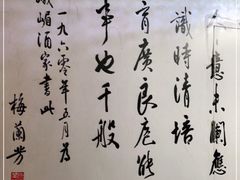 意未闌應
識時清培
育廣良庖能
事也千般
一九六零年五月為
峨嵋酒家書此
梅蘭芳